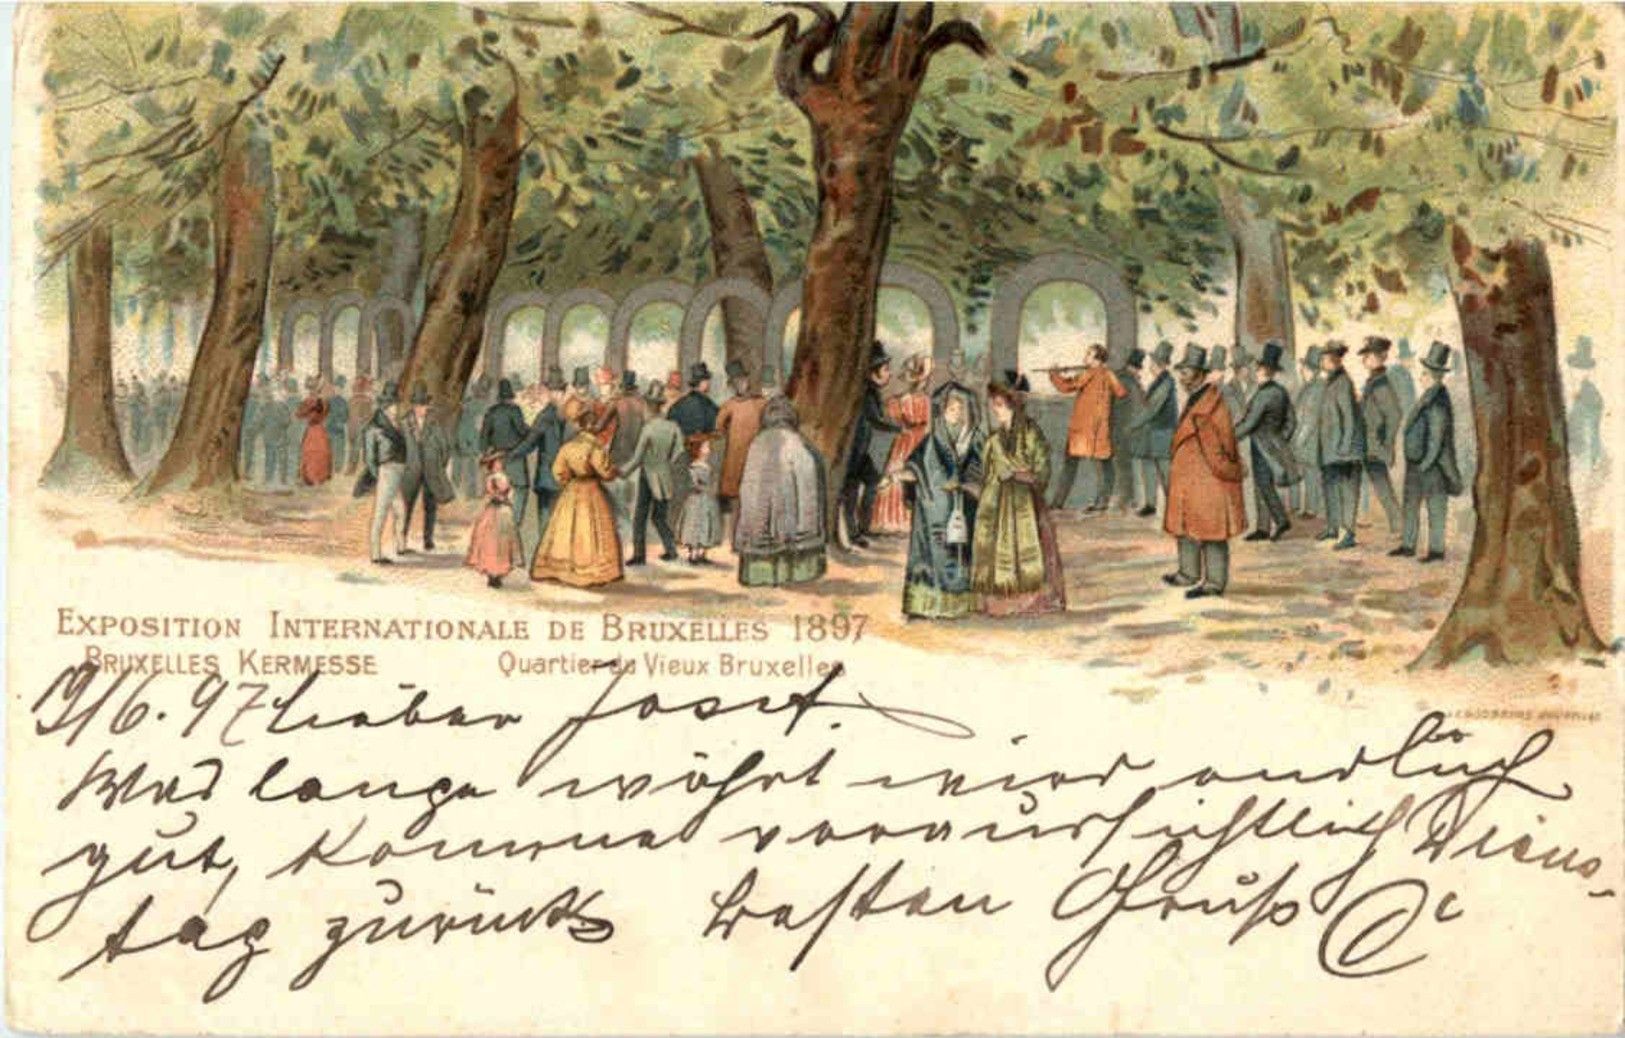 EXPOSITION INTERNATIONALE DE BRUXELLES 1897
BRUXELLES KERMESSE Quartier du Vieux Bruxelles
19/6.97 Lieber Josef.
Was lange währt wird endlich
gut, Komme voraussichtlich Diens-
tag zurück besten Gruß